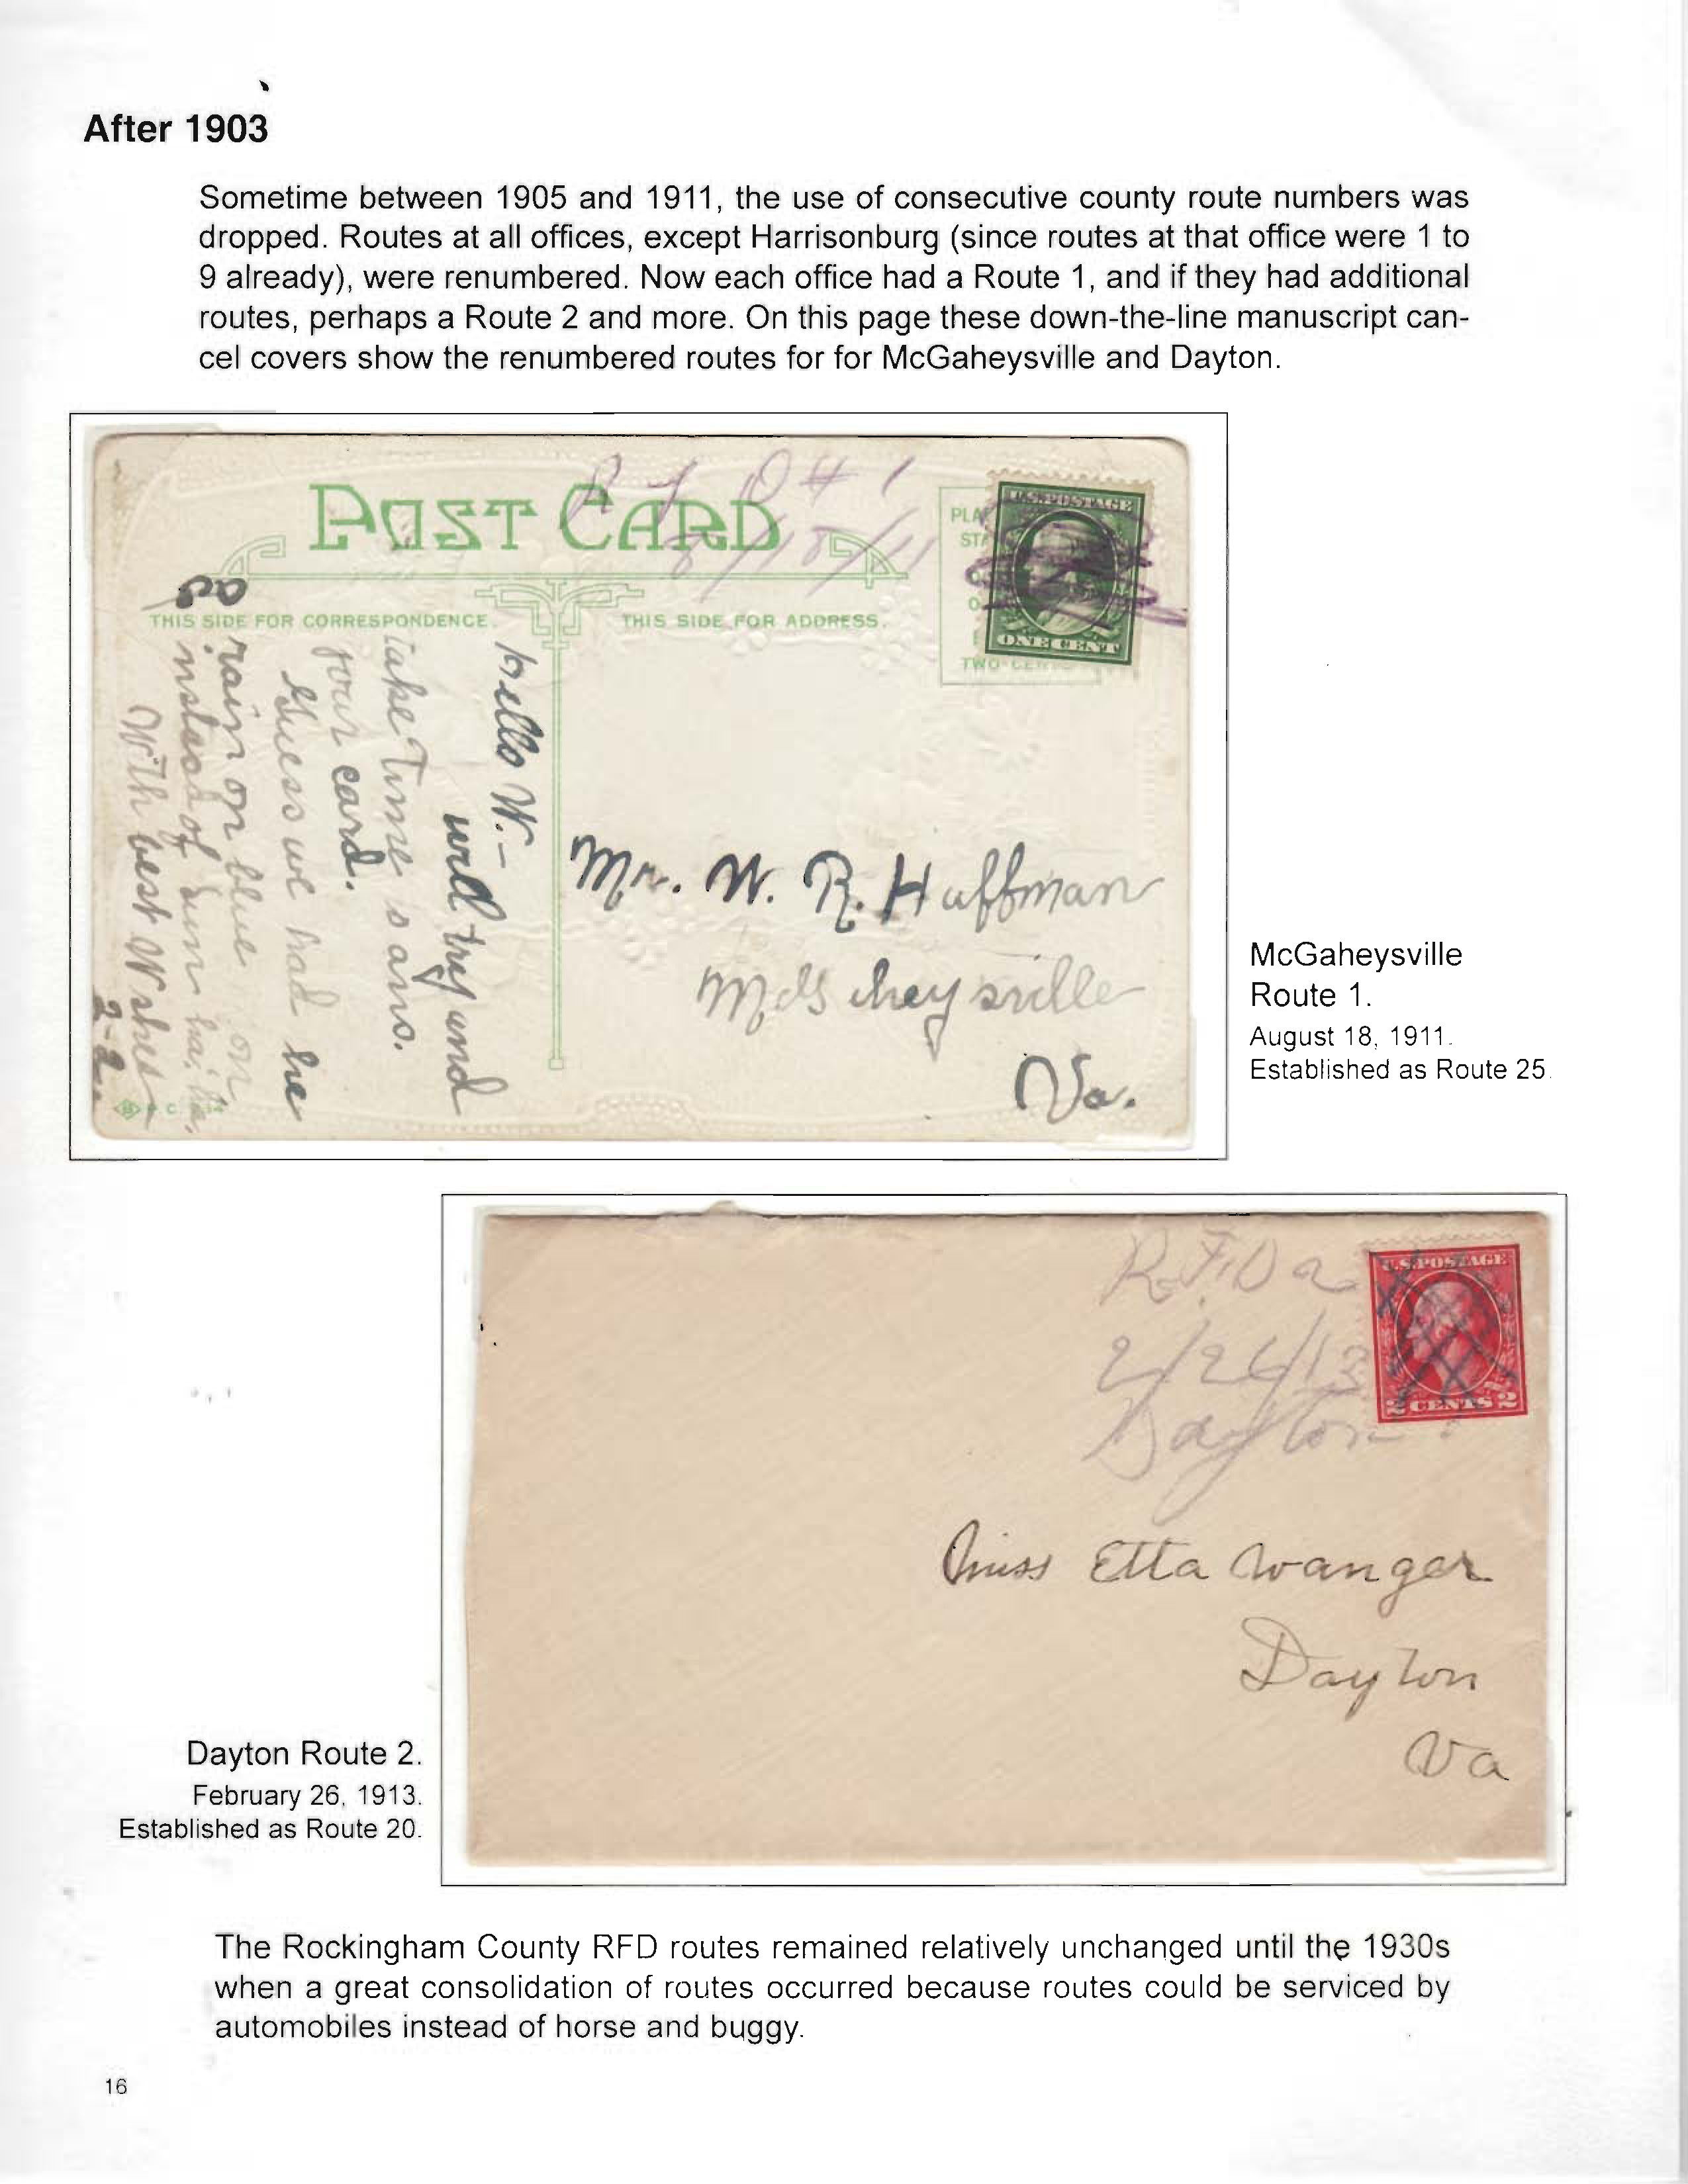 After 1903
Sometime between 1905 and 1911, the use of consecutive county route numbers was
dropped. Routes at all offices, except Harrisonburg (since routes at that office were 1 to
9 already), were renumbered. Now each office had a Route 1, and if they had additional
routes, perhaps a Route 2 and more. On this page these down-the-line manuscript can-
cel covers show the renumbered routes for for McGaheysville and Dayton.
R F D # 1
8/18/11
POST CARD
THIS SIDE FOR CORRESPONDENCE.
THIS SIDE FOR ADDRESS.
U.S. POSTAGE
ONE CENT
PLA
STA
TWO CEN
Hello W.-
will try and
take Time & ans.
your card.
Guess we had he
rain on blue on
instead of sun ha; ha,
With best Wishes
2-2.
Mr. W. R. Huffman
Va.
McGaheysville
Route 1.
August 18, 1911.
Established as Route 25.
R.F.D 2
2/26/13
Dayton
U.S. POSTAGE
2 CENTS 2
Miss Etta Wanger
Dayton
Va
Dayton Route 2.
February 26, 1913.
Established as Route 20.
The Rockingham County RFD routes remained relatively unchanged until the 1930s
when a great consolidation of routes occurred because routes could be serviced by
automobiles instead of horse and buggy.
16